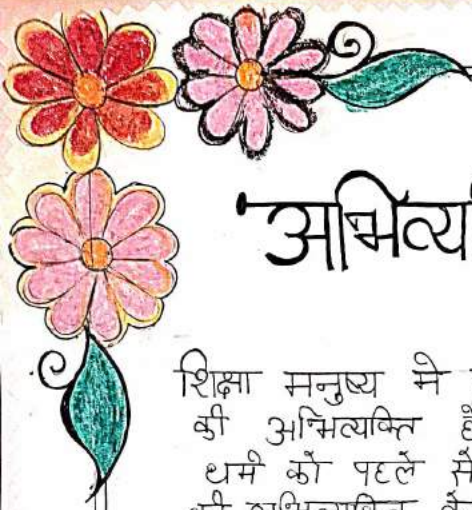 अभिव्य
शिक्षा मनुष्य मे
की अभिव्यक्ति
धर्म को पहले से
की अभिव्यक्ति